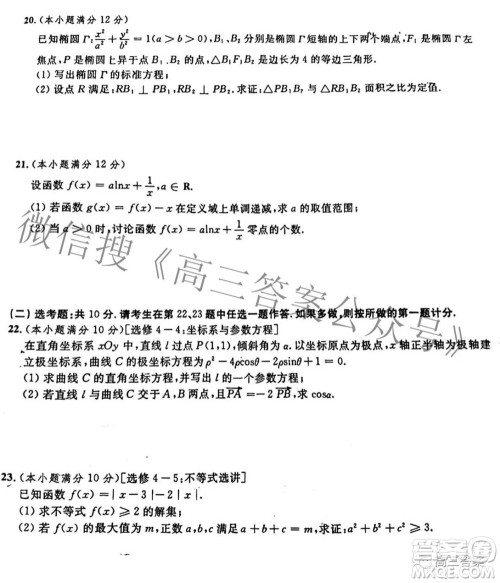 20.(本小题满分 12 分)
已知椭圆 Γ:x²/a²+y²/b²=1(a>b>0),B₁,B₂ 分别是椭圆 Γ 短轴的上下两个端点,F₁ 是椭圆 Γ 左
焦点,P 是椭圆上异于点 B₁,B₂ 的点,△B₁F₁B₂ 是边长为 4 的等边三角形.
(1)写出椭圆 Γ 的标准方程;
(2)设点 R 满足:RB₁⊥PB₁,RB₂⊥PB₂.求证:△PB₁B₂ 与△RB₁B₂ 面积之比为定值.
21.(本小题满分 12 分)
设函数 f(x)=alnx+1/x,a∈R.
(1)若函数 g(x)=f(x)-x 在定义域上单调递减,求 a 的取值范围;
(2)当 a>0 时,讨论函数 f(x)零点的个数.
(二)选考题:共 10 分.请考生在第 22、23 题中任选一题作答.如果多做,则按所做的第一题计分.
22.(本小题满分 10 分)[选修 4-4:坐标系与参数方程]
在直角坐标系 xOy 中,直线 l 过点 P(1,1),倾斜角为 α.以坐标原点为极点,x 轴正半轴为极轴建
立极坐标系,曲线 C 的极坐标方程为 ρ²-4ρcosθ-2ρsinθ+1=0.
(1)求曲线 C 的直角坐标方程,并写出 l 的一个参数方程;
(2)若直线 l 与曲线 C 交于 A,B 两点,且PA=-2PB,求 cosα.
23.(本小题满分 10 分)[选修 4-5:不等式选讲]
已知函数 f(x)=|x-3|-|x-2|.
(1)求不等式 f(x)≥2 的解集;
(2)若 f(x)的最大值为 m,正数 a,b,c 满足 a+b+c=m,求证:a²+b²+c²≥1/3.
微信搜《高三答案公众号》